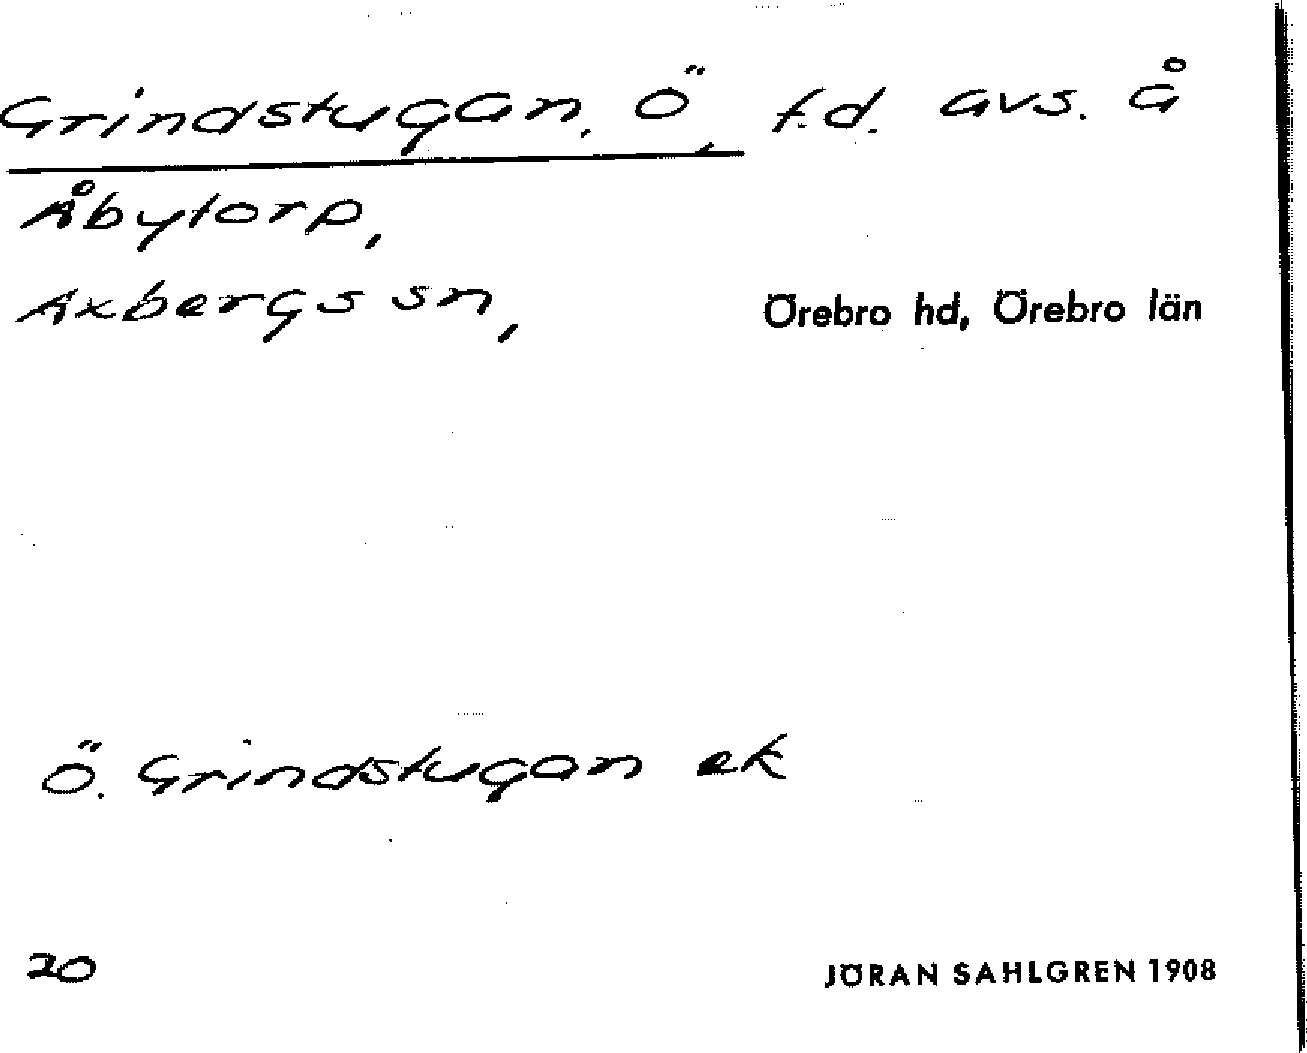 Grindstugan, Ö, f.d. avs. å
Åbytorp,
Axbergs sn, Örebro hd, Örebro län
Ö. Grindstugan ek
20 JÖRAN SAHLGREN 1908